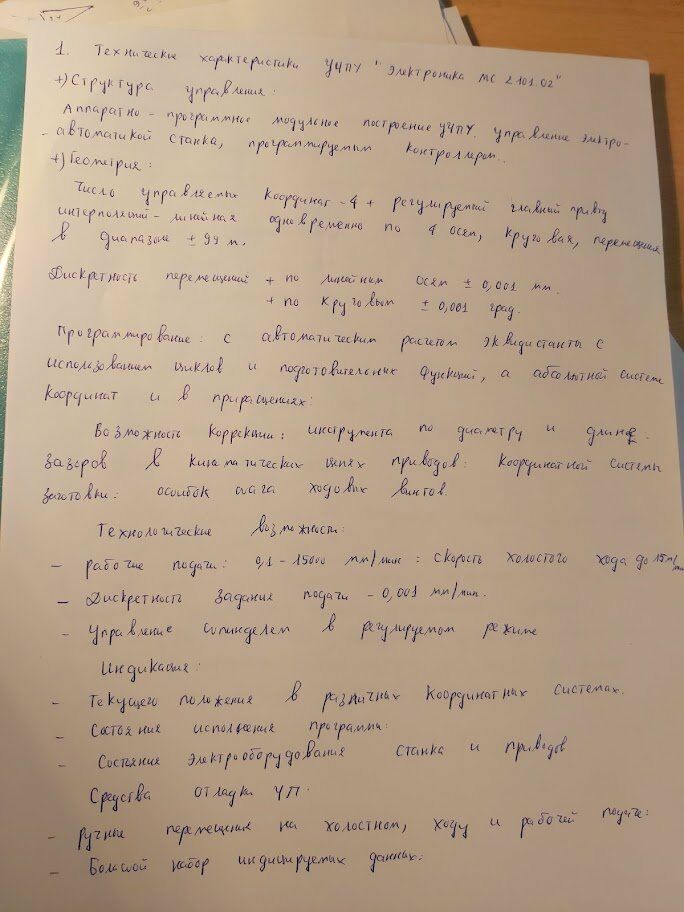 1. Технические характеристики УЧПУ "Электроника МС 2101.02"
+) Структура управления:
Аппаратно - программное модульное построение УЧПУ. управление электро-
- автоматикой станка, программируемым контроллером..
+) Геометрия:
Число управляемых координат - 4 + регулируемый главный привод
интерполяций - линейная одновременно по 4 осям, круговая, перемещения
в диапазоне ± 99 м.
Дискретность перемещений + по линейным осям ± 0,001 мм.
+ по круговым ± 0,001 град.
Программирование: с автоматическим расчетом эквидистанты с
использованием циклов и подготовительных функций, а абсолютной системе
координат и в приращениях:
Возможность коррекции: инструмента по диаметру и длине:
зазоров в кинематических цепях приводов: координатной системы
заготовки: ошибок шага ходовых винтов.
Технологические возможности:
- рабочие подачи: 0,1 - 15000 мм/мин: скорость холостого хода до 15м/мин
- Дискретность задания подачи - 0,001 мм/мин.
- Управление шпинделем в регулируемом режиме
Индикация:
- Текущего положения в различных координатных системах.
- Состояния исполнения программы:
- Состояния электрооборудования станка и приводов
Средства отладки УП.
- Ручные перемещения на холостном, ходу и рабочей подаче:
- Большой набор индицируемых данных: